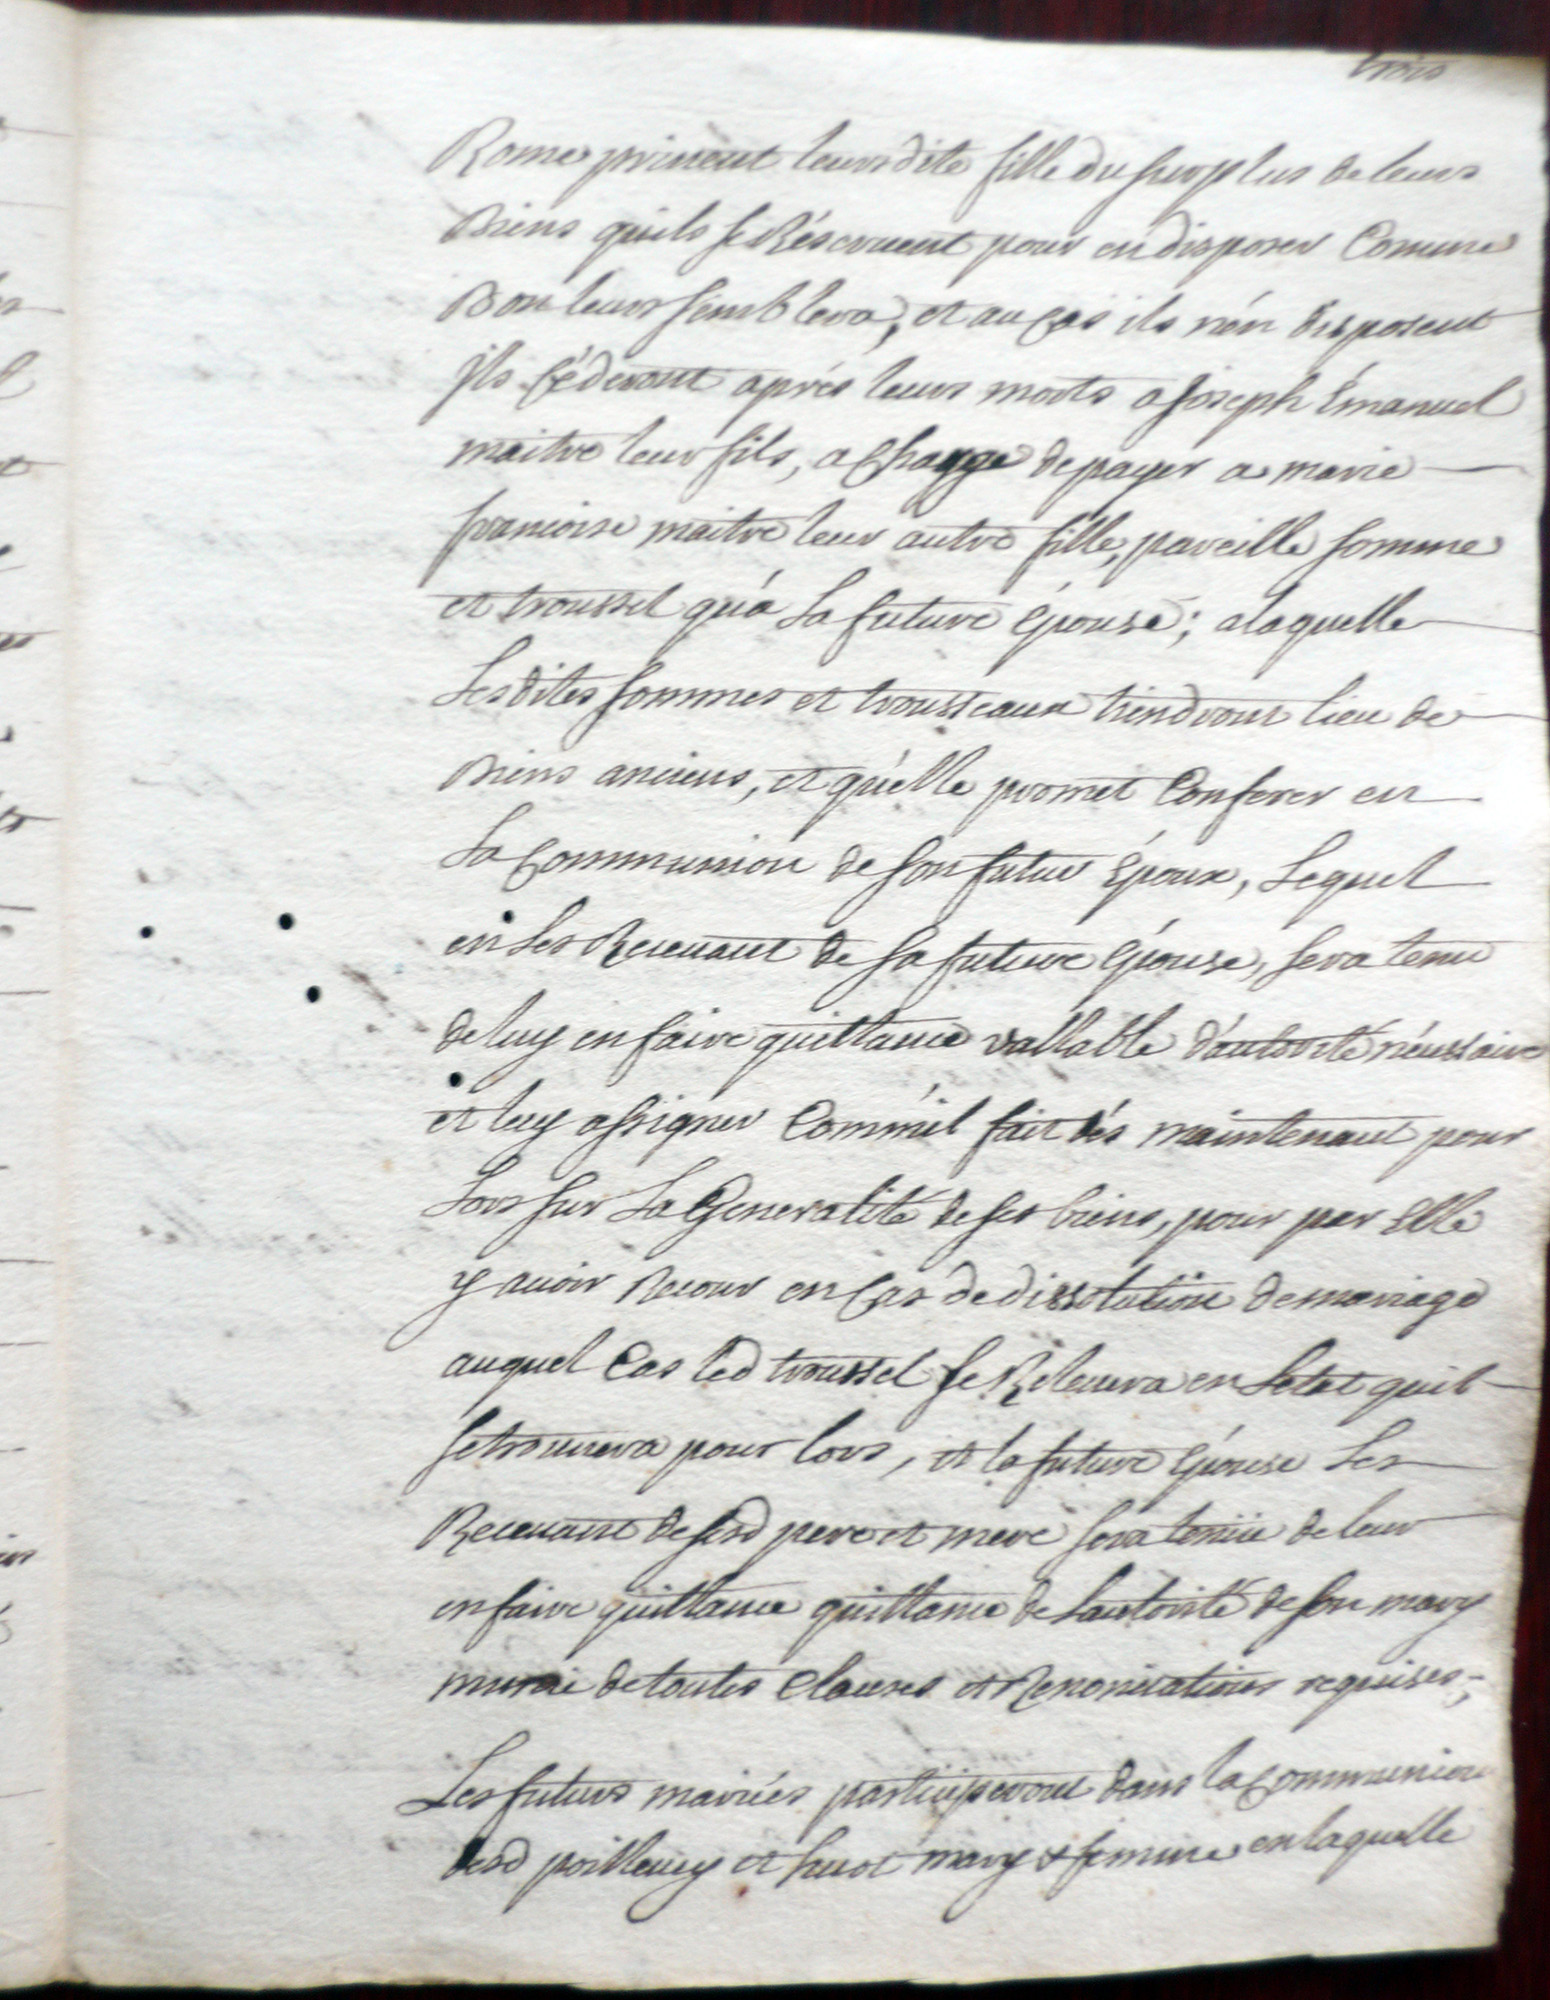 trois
Rome privent leursdite fille du surplus de leurs
Biens quils se Réservent pour en disposer Comme
Bon leurs semblera, et au Cas ils nén disposent
Ils Céderont aprés leurs morts a Joseph Émanuel
maitre leur fils, a Charge de payer a marie
francoise maitre leur autre fille, pareille somme
et troussel qu'a La future Épouse; alaquelle
Lesdites sommes et trousseaux tiendront lieu de
Biens anciens, et quélle promet Conferer en
La Communion de son futur Époux, Lequel
en Les Recevant de sa future Épouse, sera tenu
de luy en faire quittance vallable d'autorité nécessaire
et luy assigner Comm'il fait dés maintenant pour
Lors sur La Generalité de ses biens, pour par Elle
y avoir Recour en Cas de dissolution de mariage
auquel Cas led troussel se Relevera en Letat quil
se trouvera pour lors, et la future Épouse Les
Recevant de sesd pere et mere sera tenüe de leur
en faire quittance quittance de Lautorité de son mary
munie de toutes Clauses et Renonciations requises;
Les futurs mariés participeront dans la Communion
desd poilleney et huot mary & femme en laquelle